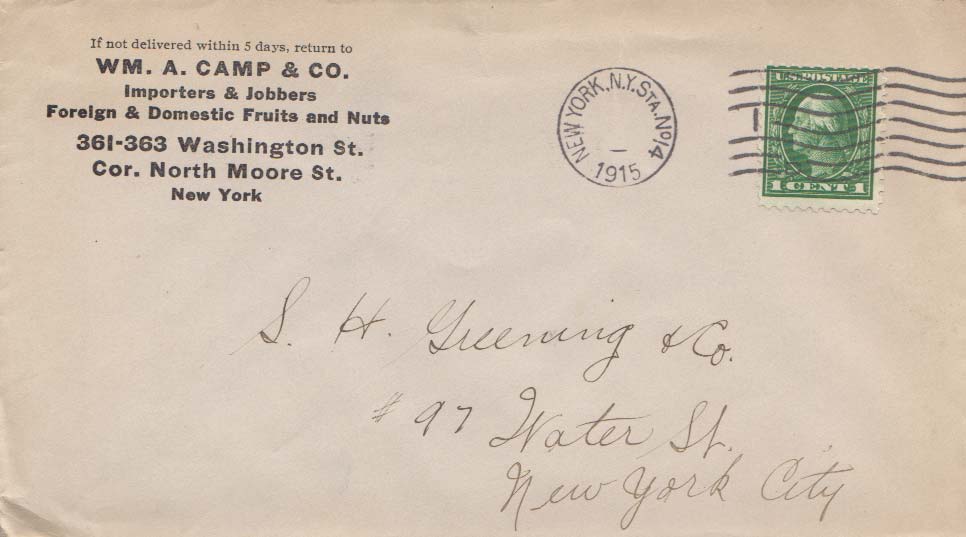 If not delivered within 5 days, return to
WM. A. CAMP & CO.
Importers & Jobbers
Foreign & Domestic Fruits and Nuts
361-363 Washington St.
Cor. North Moore St.
New York
NEW YORK, N.Y. STA. No 14
1915
U.S. POSTAGE
1 CENT 1
S. H. Greening & Co.
# 97 Water St.
New York City